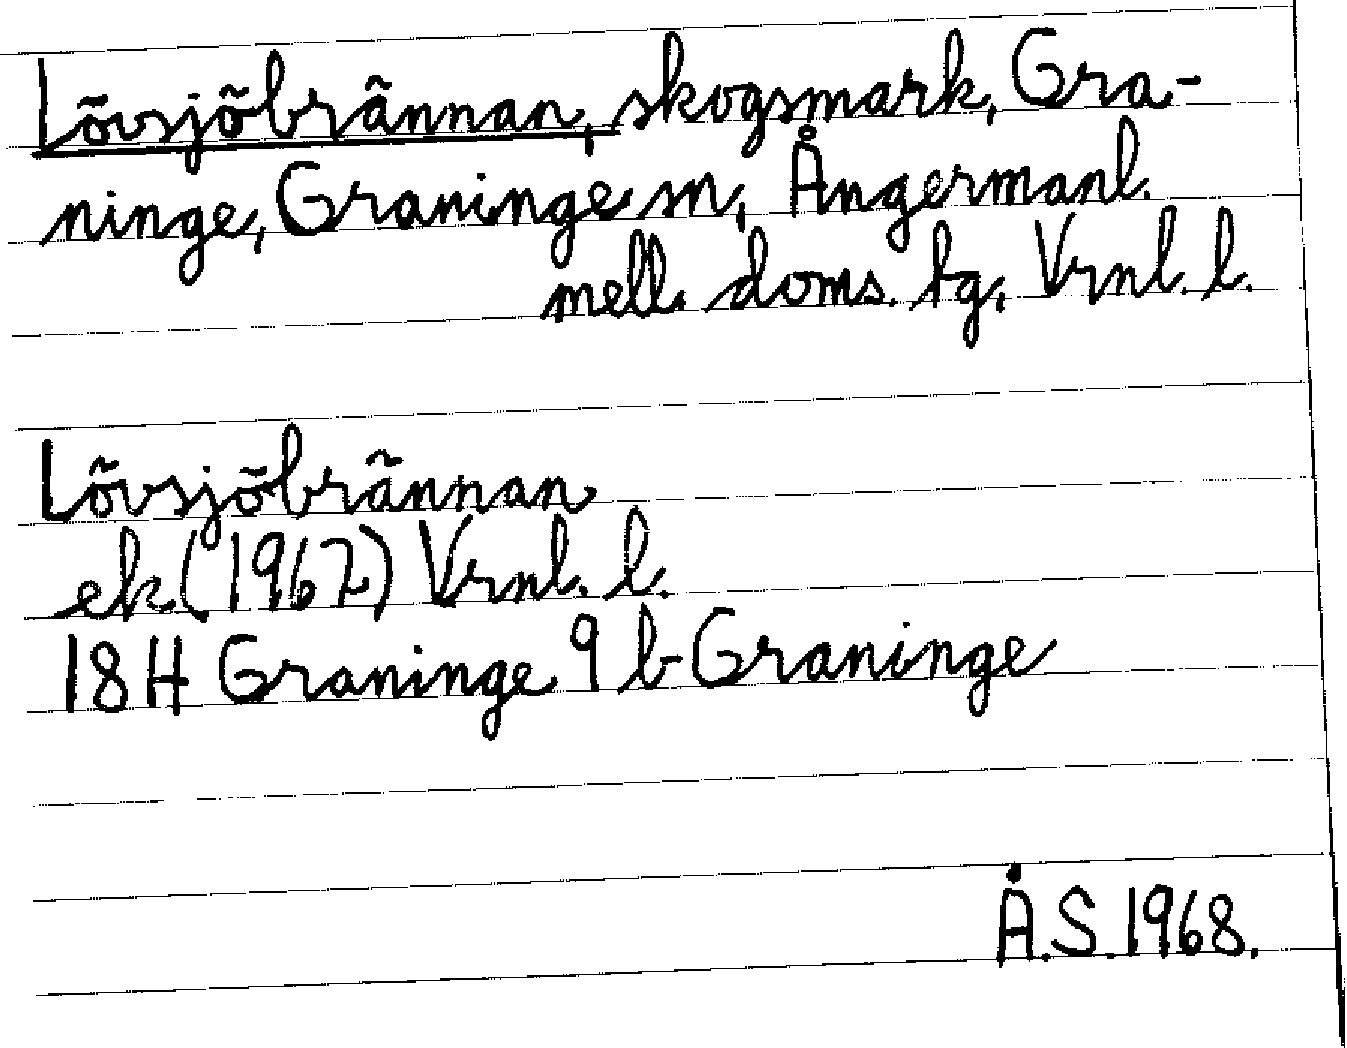 Lövsjöbrännan, skogsmark, Gra-
ninge, Graninge sn, Ångermanl.
mell. doms. tg, Vrnl. l.
Lövsjöbrännan
ek (1967) Vrnl. l.
18H Graninge 9 b Graninge
Å.S. 1968.